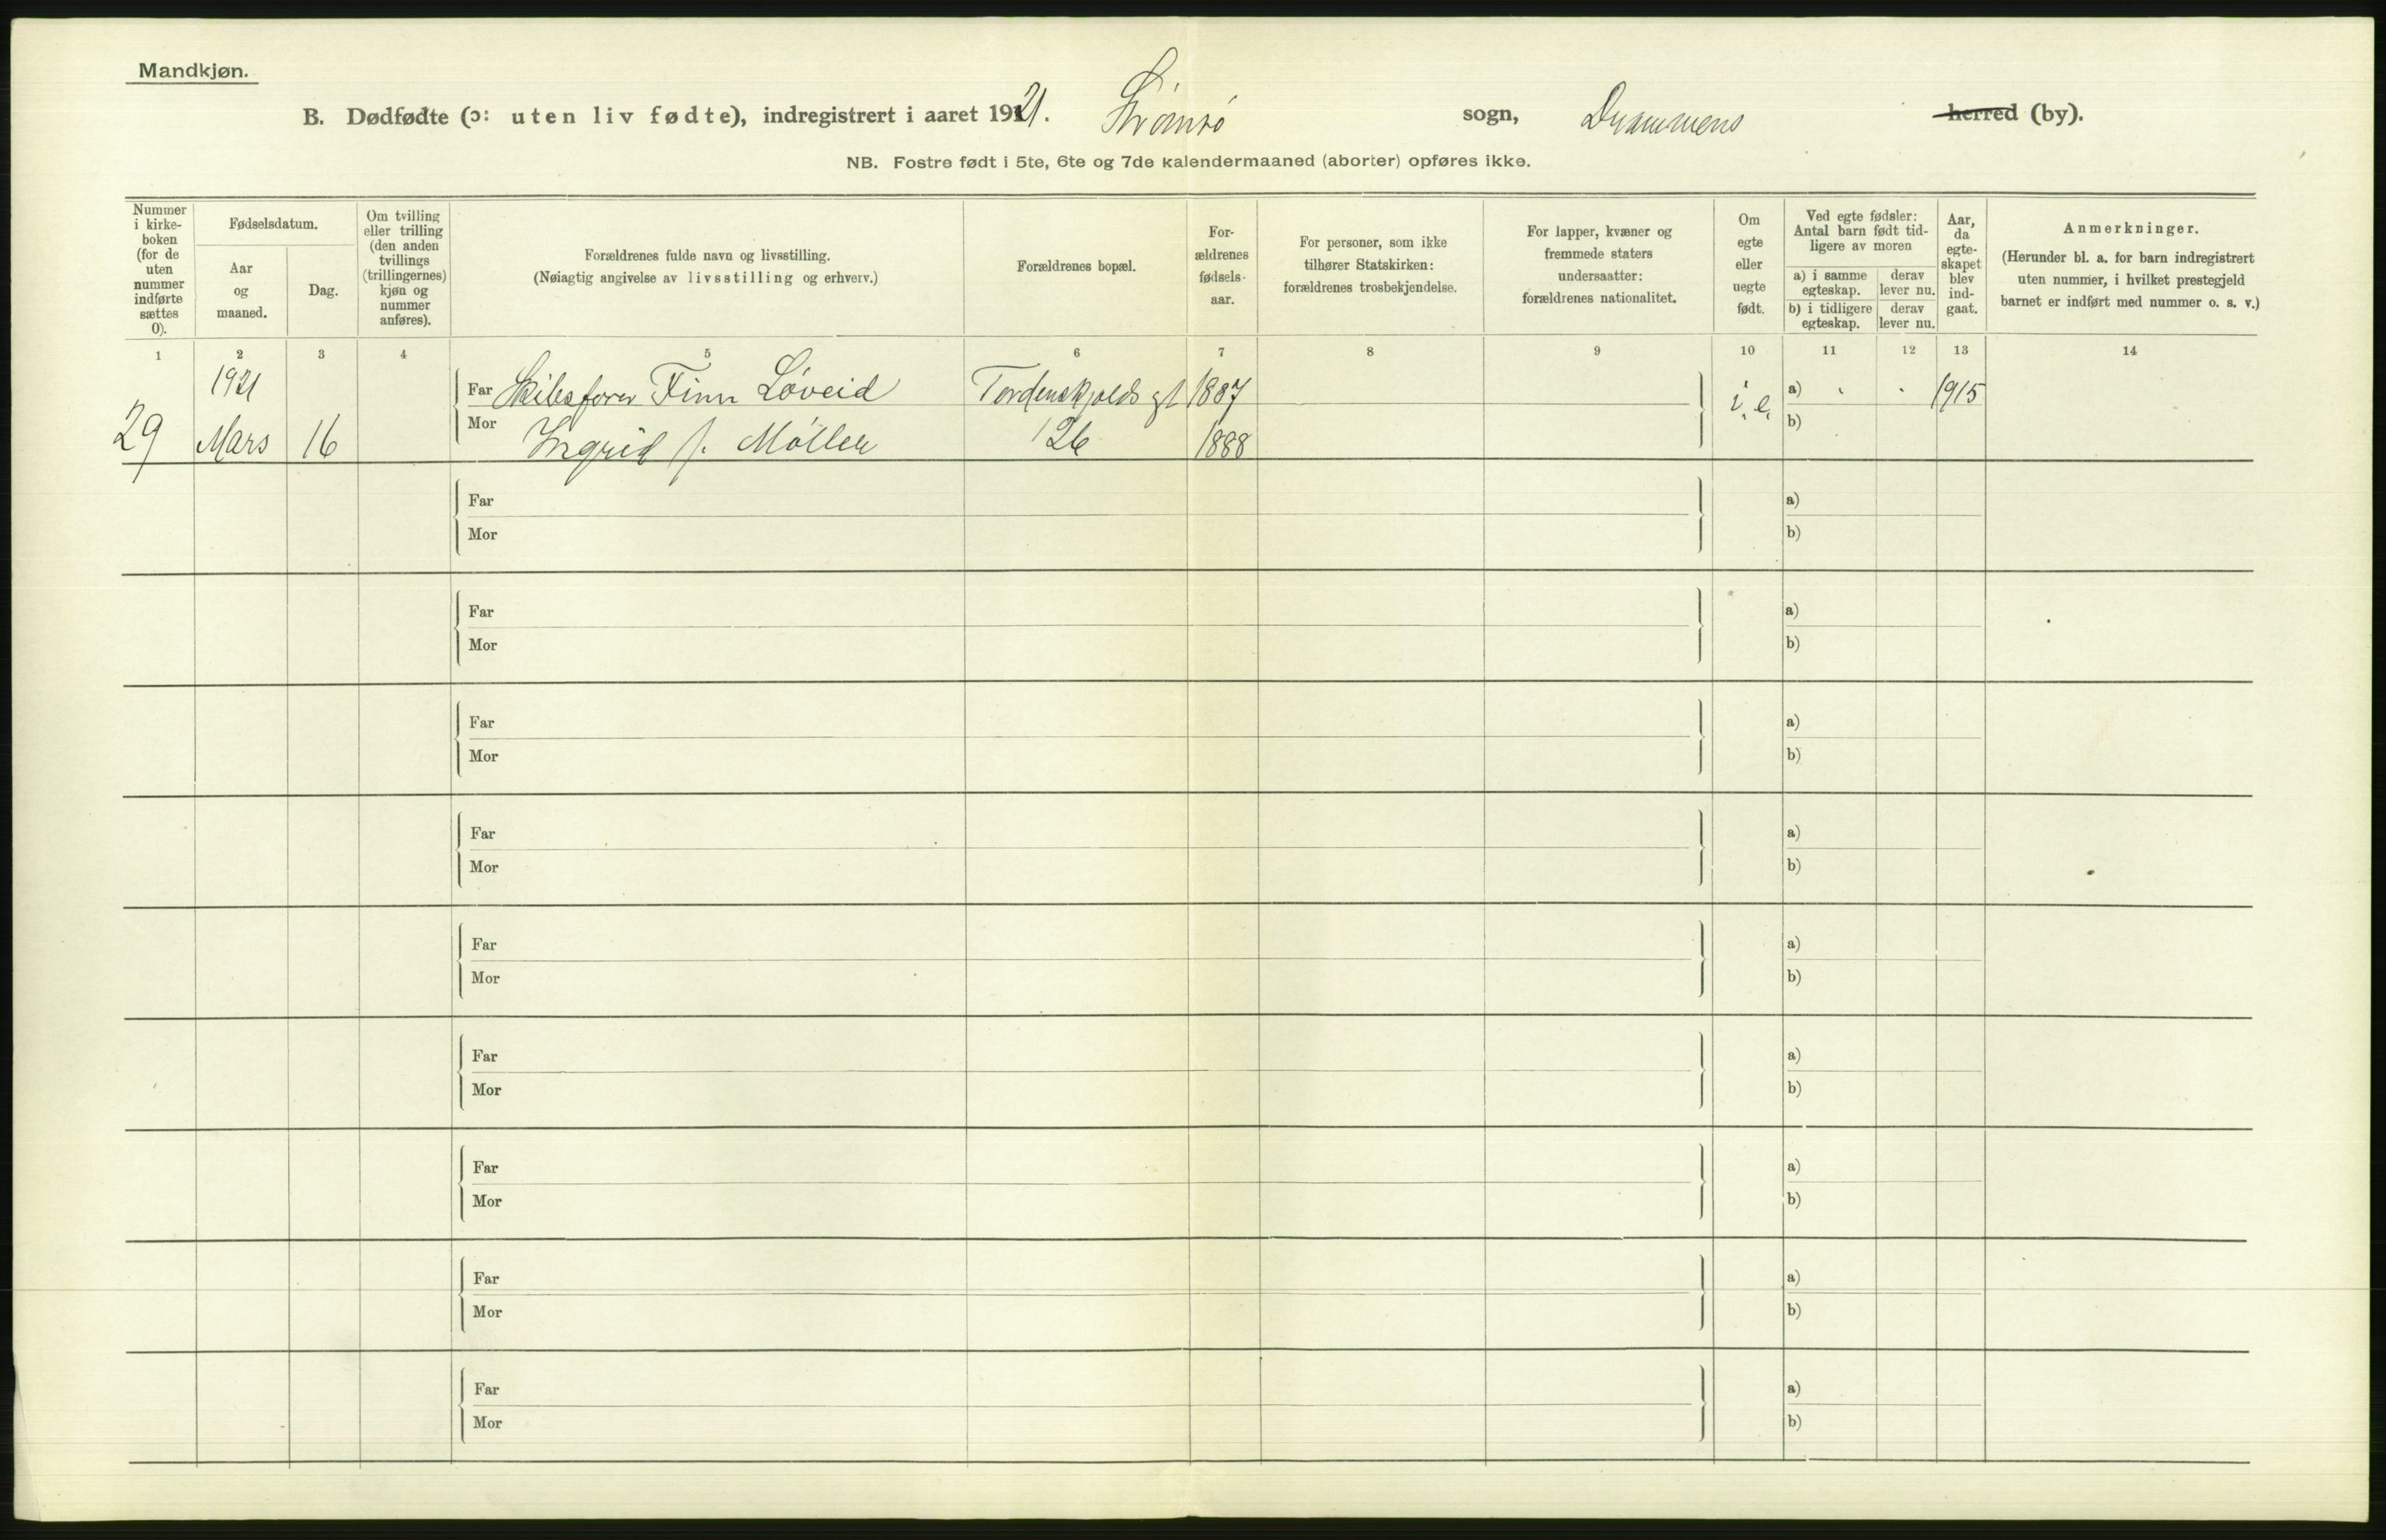 Mandkjøn.
B. Dødfødte (ɔ: uten liv fødte), indregistrert i aaret 1921. Strømsø sogn, Drammens herred (by).
NB. Fostre født i 5te, 6te og 7de kalendermaaned (aborter) opføres ikke.
Nummer i kirke-boken (for de uten nummer indførte sættes 0).
Fødselsdatum.
Aar og maaned.
Dag.
Om tvilling eller trilling (den anden tvillings (trillingernes) kjøn og nummer anføres).
Forældrenes fulde navn og livsstilling.
(Nøiagtig angivelse av livsstilling og erhverv.)
Forældrenes bopæl.
For-ældrenes fødsels-aar.
For personer, som ikke tilhører Statskirken: forældrenes trosbekjendelse.
For lapper, kvæner og fremmede staters undersaatter: forældrenes nationalitet.
Om egte eller uegte født.
Ved egte fødsler: Antal barn født tid-ligere av moren
a) i samme egteskap.
derav lever nu.
b) i tidligere egteskap.
derav lever nu.
Aar, da egte-skapet blev ind-gaat.
Anmerkninger.
(Herunder bl. a. for barn indregistrert uten nummer, i hvilket prestegjeld barnet er indført med nummer o. s. v.)
1 2 3 4 5 6 7 8 9 10 11 12 13 14
1921 Far Skibsfører Finn Løveid Tordenskjolds gt 1887 i. e. a) 1915
29 Mars 16 Mor Ingrid f. Møller 126 1888 b)
Far a)
Mor b)
Far a)
Mor b)
Far a)
Mor b)
Far a)
Mor b)
Far a)
Mor b)
Far a)
Mor b)
Far a)
Mor b)
Far a)
Mor b)
Far a)
Mor b)